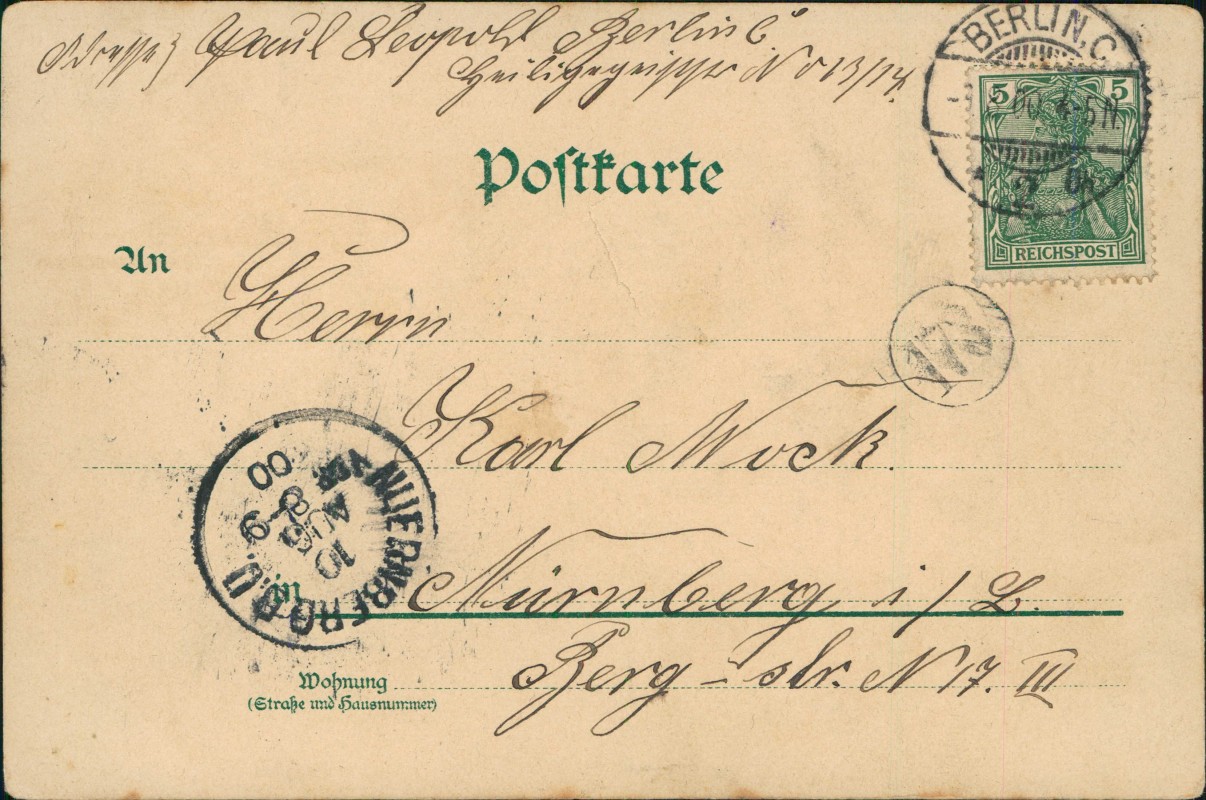 Adresse} Paul Leopold Berlin C
Heiligegeiststr N o 13/14
BERLIN, C.
00 4-5 N.
2
5 5
REICHSPOST
Postkarte
An
Herrn
Karl Mock
NUERNBERG
10
AUG
8-9
00
in
Nürnberg i/
Berg-str. N 17. III
Wohnung
(Straße und Hausnummer)